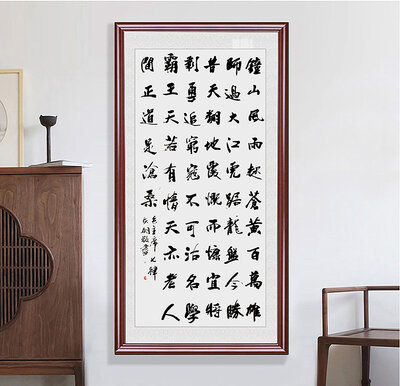 鐘山風雨起蒼黃百萬雄
師過大江虎踞龍盤今勝
昔天翻地覆慨而慷宜將
剩勇追窮寇不可沽名學
霸王天若有情天亦老人
間正道是滄桑
毛主席七律